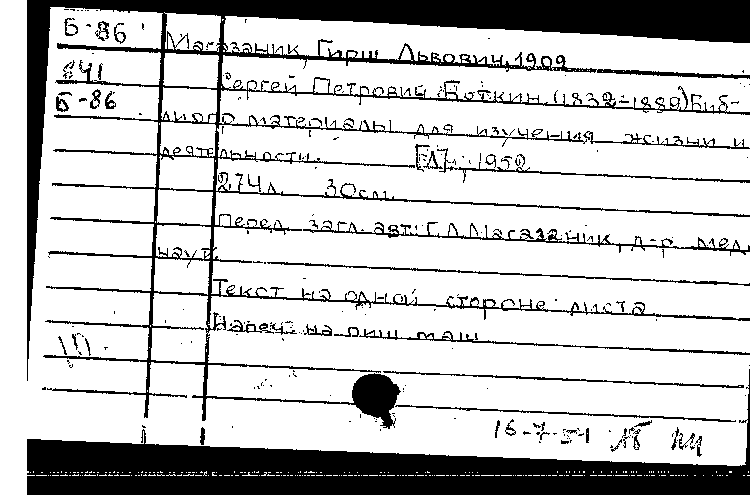 Б-86
Магазаник, Гирш Львович, 1909
841
Сергей Петрович Боткин (1832-1889) Биб-
Б-86
лиогр материалы для изучения жизни и
деятельности. [Л], 1952
274л. 30см.
Перед загл. авт: Г.Л. Магазаник, д-р мед.
наук.
Текст на одной стороне листа
Напеч. на пиш. маш
16-7-54